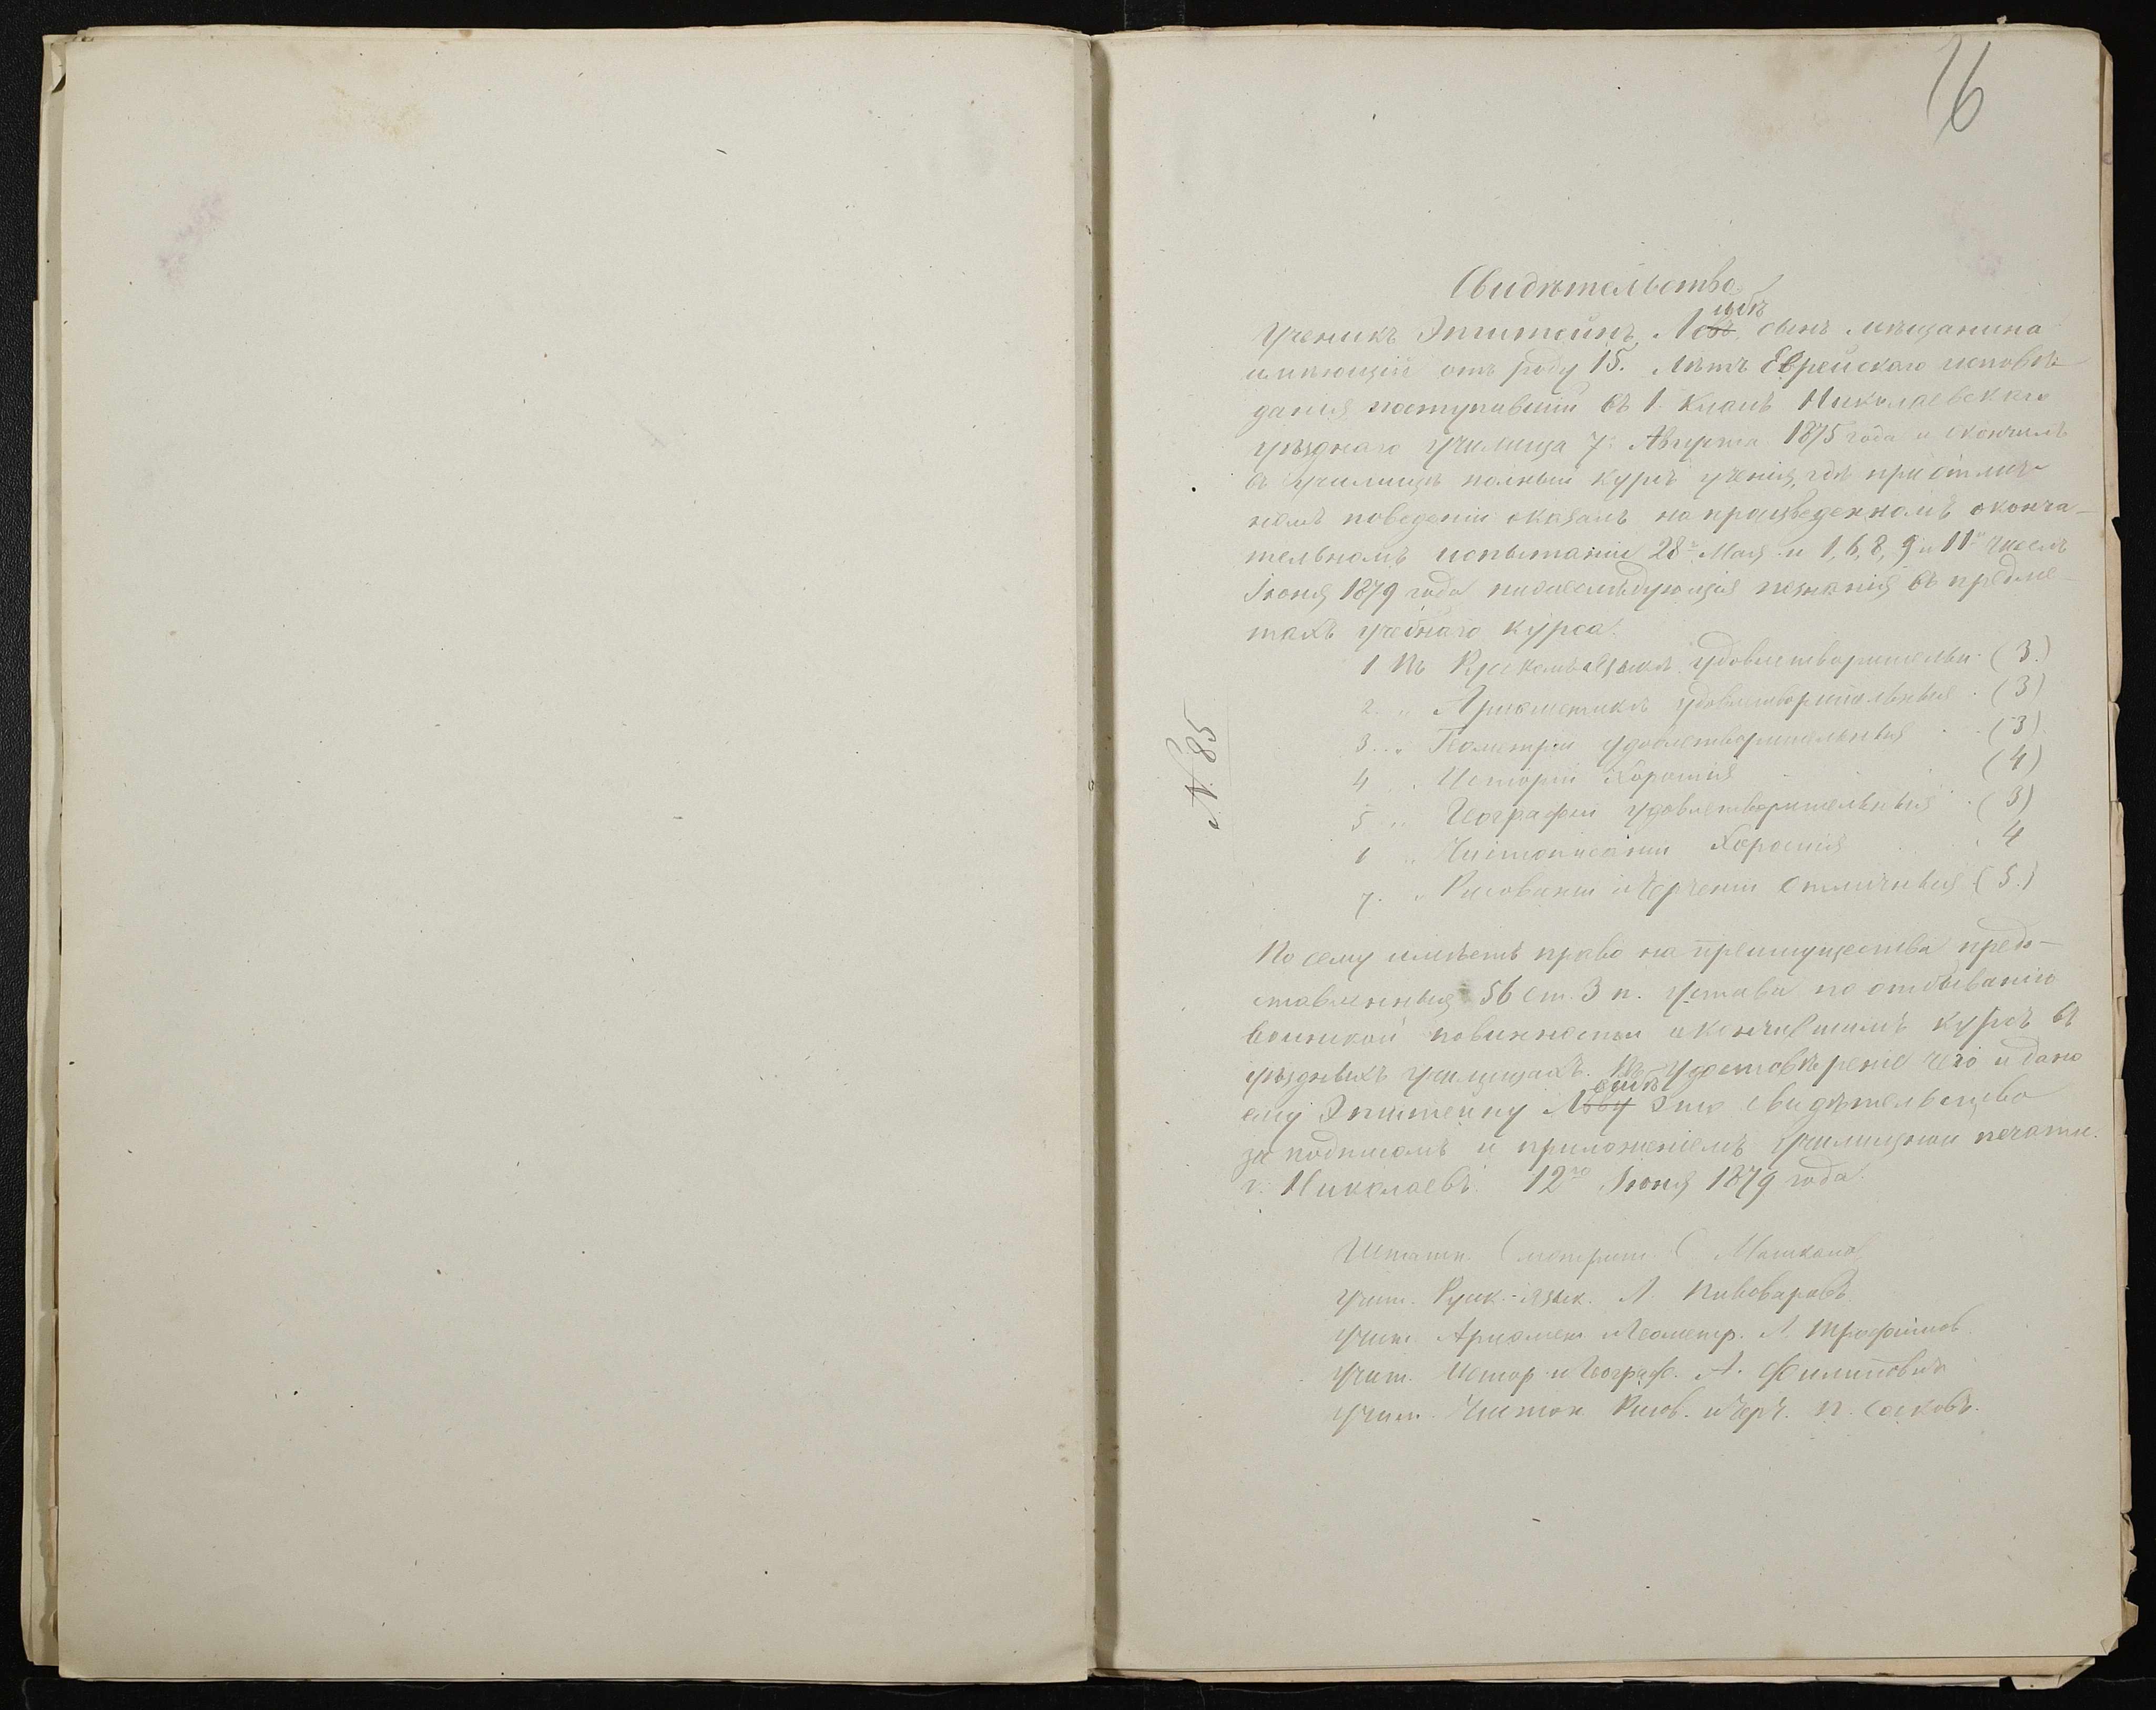 16
Свидѣтельство
ейбъ
Ученикъ Эпштейнъ, Левъ, сынъ мѣщанина
имѣющій отъ роду 15. лѣтъ Еврейскаго исповѣ-
данія поступившій въ 1 классъ Николаевскаго
уѣзднаго училища 7. Августа 1875 года и окончилъ
въ училищѣ полный курсъ ученія, гдѣ при отлич-
номъ поведеніи оказалъ на произведенномъ оконча-
тельномъ испытаніи 28 Мая и 1, 6, 8, 9 и 11 чиселъ
Іюня 1879 года нижеслѣдующія познанія въ предме
тахъ учебнаго курса.
1 Въ Русскомъ языкѣ удовлетворительн. (3.)
2. „ Ариѳметикѣ удовлетворительныя . (3)
3. „ Геометріи удовлетворительныя . . (3)
4 „ Исторіи хорошія (4)
5 „ Географіи удовлетворительныя . (3)
6 „ Чистописаніи хорошія . 4
7. „ Рисованіи и Черченіи отличныя (5.)
N. 85
По сему имѣетъ право на преимущества предо-
ставленныя 56 ст. 3 п. Устава по отбыванію
воинской повинности окончившимъ курсъ въ
уѣздныхъ училищахъ. Въ удостовѣреніе чего и дано
ему Эпштейну Льву это свидѣтельство
за подписомъ и приложеніемъ училищной печати.
г. Николаевъ. 12го Іюня 1879 года.
Штатн. Смотрит. С Машканов
Учит. Русск. язык. Л. Пивоваровъ.
Учит. Ариѳмет и Геометр. Л. Трофимов
Учит. Истор и Географ. А. Филиповичъ
Учит. Чистоп. Рисов. и Черч. П. Сосковъ.